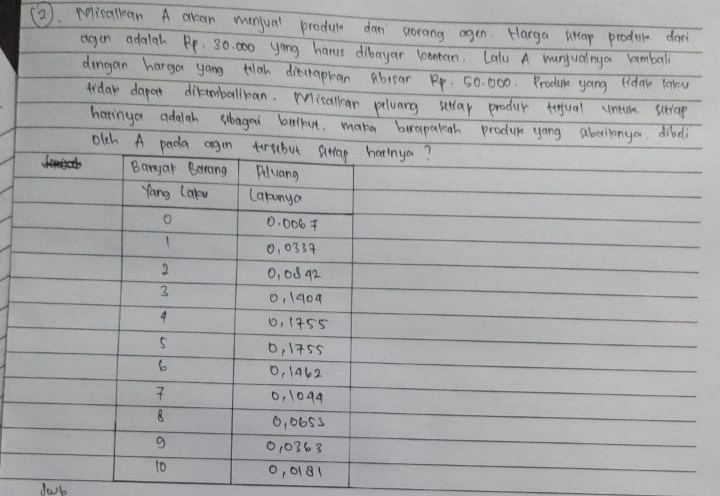 (2). Misalkan A akan menjual produk dari seorang agen. Harga setiap produk dari
agen adalah Rp. 30.000 yang harus dibayar kontan. Lalu A menjualnya kembali
dengan harga yang telah ditetapkan sebesar Rp. 50.000. Produk yang tidak laku
tidak dapat dikembalikan. Misalkan peluang setiap produk terjual untuk setiap
harinya adalah sebagai berikut. maka berapakah produk yang sebaiknya dibeli
oleh A pada agen tersebut setiap harinya ?
Banyak Barang Peluang
Yang Laku Lakunya
0 0.0067
1 0,0337
2 0,0842
3 0,1404
4 0,1755
5 0,1755
6 0,1462
7 0,1044
8 0,0653
9 0,0363
10 0,0181
Jwb